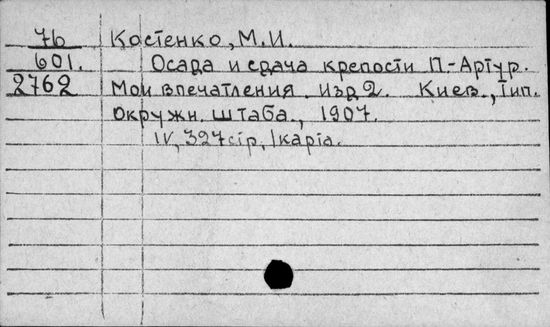 76 Костенко, М.И.
601. Осада и сдача крепости П.-Артур.
2762 Мои впечатления. Изд 2. Киев., Тип.
Окружн. штаба., 1907.
IV, 327 стр, 1 карта.